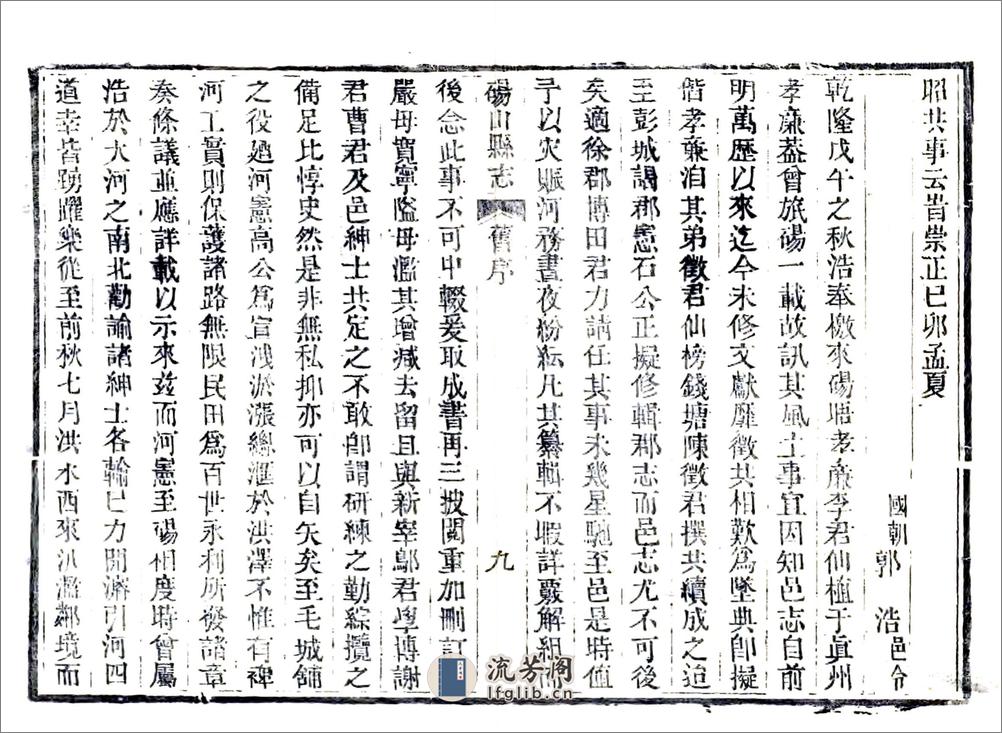 昭共事云昔崇正己卯孟夏
國朝郭 浩邑令
乾隆戊午之秋浩奉檄來碭晤孝廉李君仙植于眞州
孝廉葢曾旅碭一載故訊其風土事宜因知邑志自前
明萬歷以來迄今未修文獻靡徵共相歎爲墜典卽擬
偕孝亷洎其弟徵君仙榜錢塘陳徵君撰共續成之迨
至彭城謁郡憲石公正擬修輯郡志而邑志尤不可後
矣適徐郡博田君力請任其事未幾星馳至邑是時值
予以灾賑河務晝夜紛紜凡其纂輯不暇詳覈解組而
碭山縣志 舊序 九
後念此事不可中輟爰取成書再三披閱重加刪訂
嚴母寛寧隘母濫其增減去留且與新宰鄔君學博謝
君曹君及邑紳士共定之不敢卽謂研練之勤綜攬之
備足比惇史然是非無私抑亦可以自矢矣至毛城舖
之役廼河憲高公爲宣洩淤漲總滙於洪澤不惟有裨
河工實則保護諸路無限民田爲百世永利所發諸章
奏條議並應詳載以示來玆而河憲至碭相度時曾屬
浩於大河之南北勸諭諸紳士各輸已力開濬引河四
道幸皆踴躍樂從至前秋七月洪水西來汎濫鄰境而
流芳阁
lfglib.cn